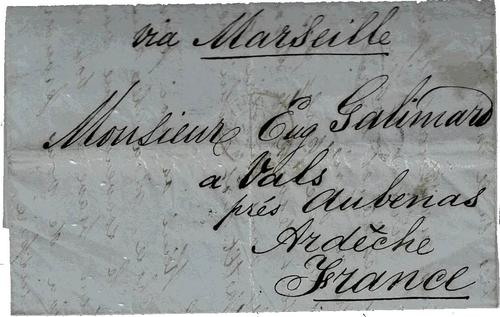 via Marseille
Monsieur Eug Galimard
a Vals
prés Aubenas
Ardèche
France